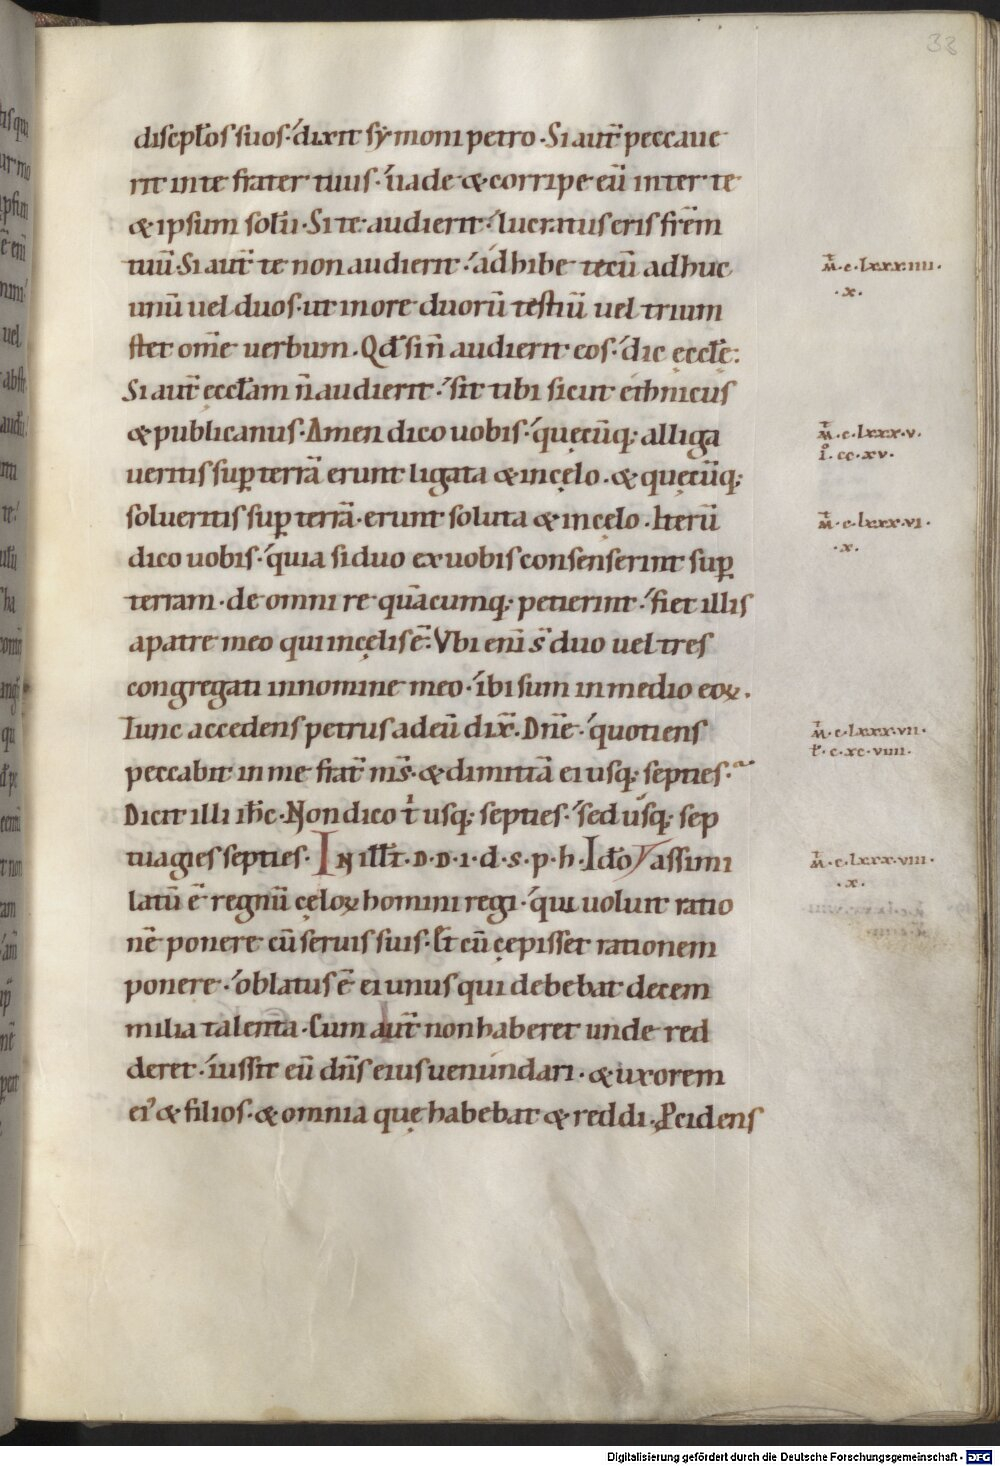 38
discipl̄os suos·́ dixit sẏmoni petro· Si aut̄ peccaue
rit in te frater tuus·́ uade & corripe eū inter te
& ipsum solū· Si te audierit·́ lucratus eris fr̄em
tuū· Si aut̄ te non audierit·́ adhibe tecū adhuc
unū uel duos· ut in ore duorū testiū uel trium
stet om̄e uerbum. Qd̄ si n̄ audierit eos·́ dic ęccl̄ę:
Si aut̄ ęccl̄am n̄ audierit·́ sit tibi sicut ethnicus
& publicanus· Amen dico uobis·́ quęcūq; alliga
ueritis suꝑ terrā erunt ligata & in cęlo· & quęcūq;
solueritis suꝑ terrā· erunt soluta & in cęlo· Iterū
dico uobis·́ quia si duo ex uobis consenserint suꝑ
terram· de omni re quācumq; petierint·́ fiet illis
a patre meo qui in cęlis ē: Vbi enī s̄ duo uel tres
congregati in nomine meo·́ ibi sum in medio eoꝝ.
Tunc accedens petrus ad eū dix̄· Dn̄e·́ quotiens
peccabit in me frat̄ ms̄· & dimittā ei usq; septies·
Dicit illi ih̄c· Non dico t usq; septies·́ sed usq; sep
tuagies septies· IN ill̄ t̄· D·D·I·d·S·p·h· Id̄o assimi
latū ē regnū cęloꝝ homini regi·́ qui uoluit ratio
nē ponere cū seruis suis· Et cū cępisset rationem
ponere·́ oblatus ē ei unus qui debebat decem
milia talenta· Cum aut̄ non haberet unde red
deret·́ iussit eū dn̄s eius uenundari· & uxorem
ei' & filios· & omnia quę habebat & reddi· P̱cidens
m̄·c·lxxx·iiii·
·x·
m̄·c·lxxx·v·
i·cc·xv·
m̄·c·lxxx·vi·
·x·
m̄·c·lxxx·vii·
l̄·c·xc·viiii·
m̄·c·lxxx·viii·
·x·
Digitalisierung gefördert durch die Deutsche Forschungsgemeinschaft - DFG